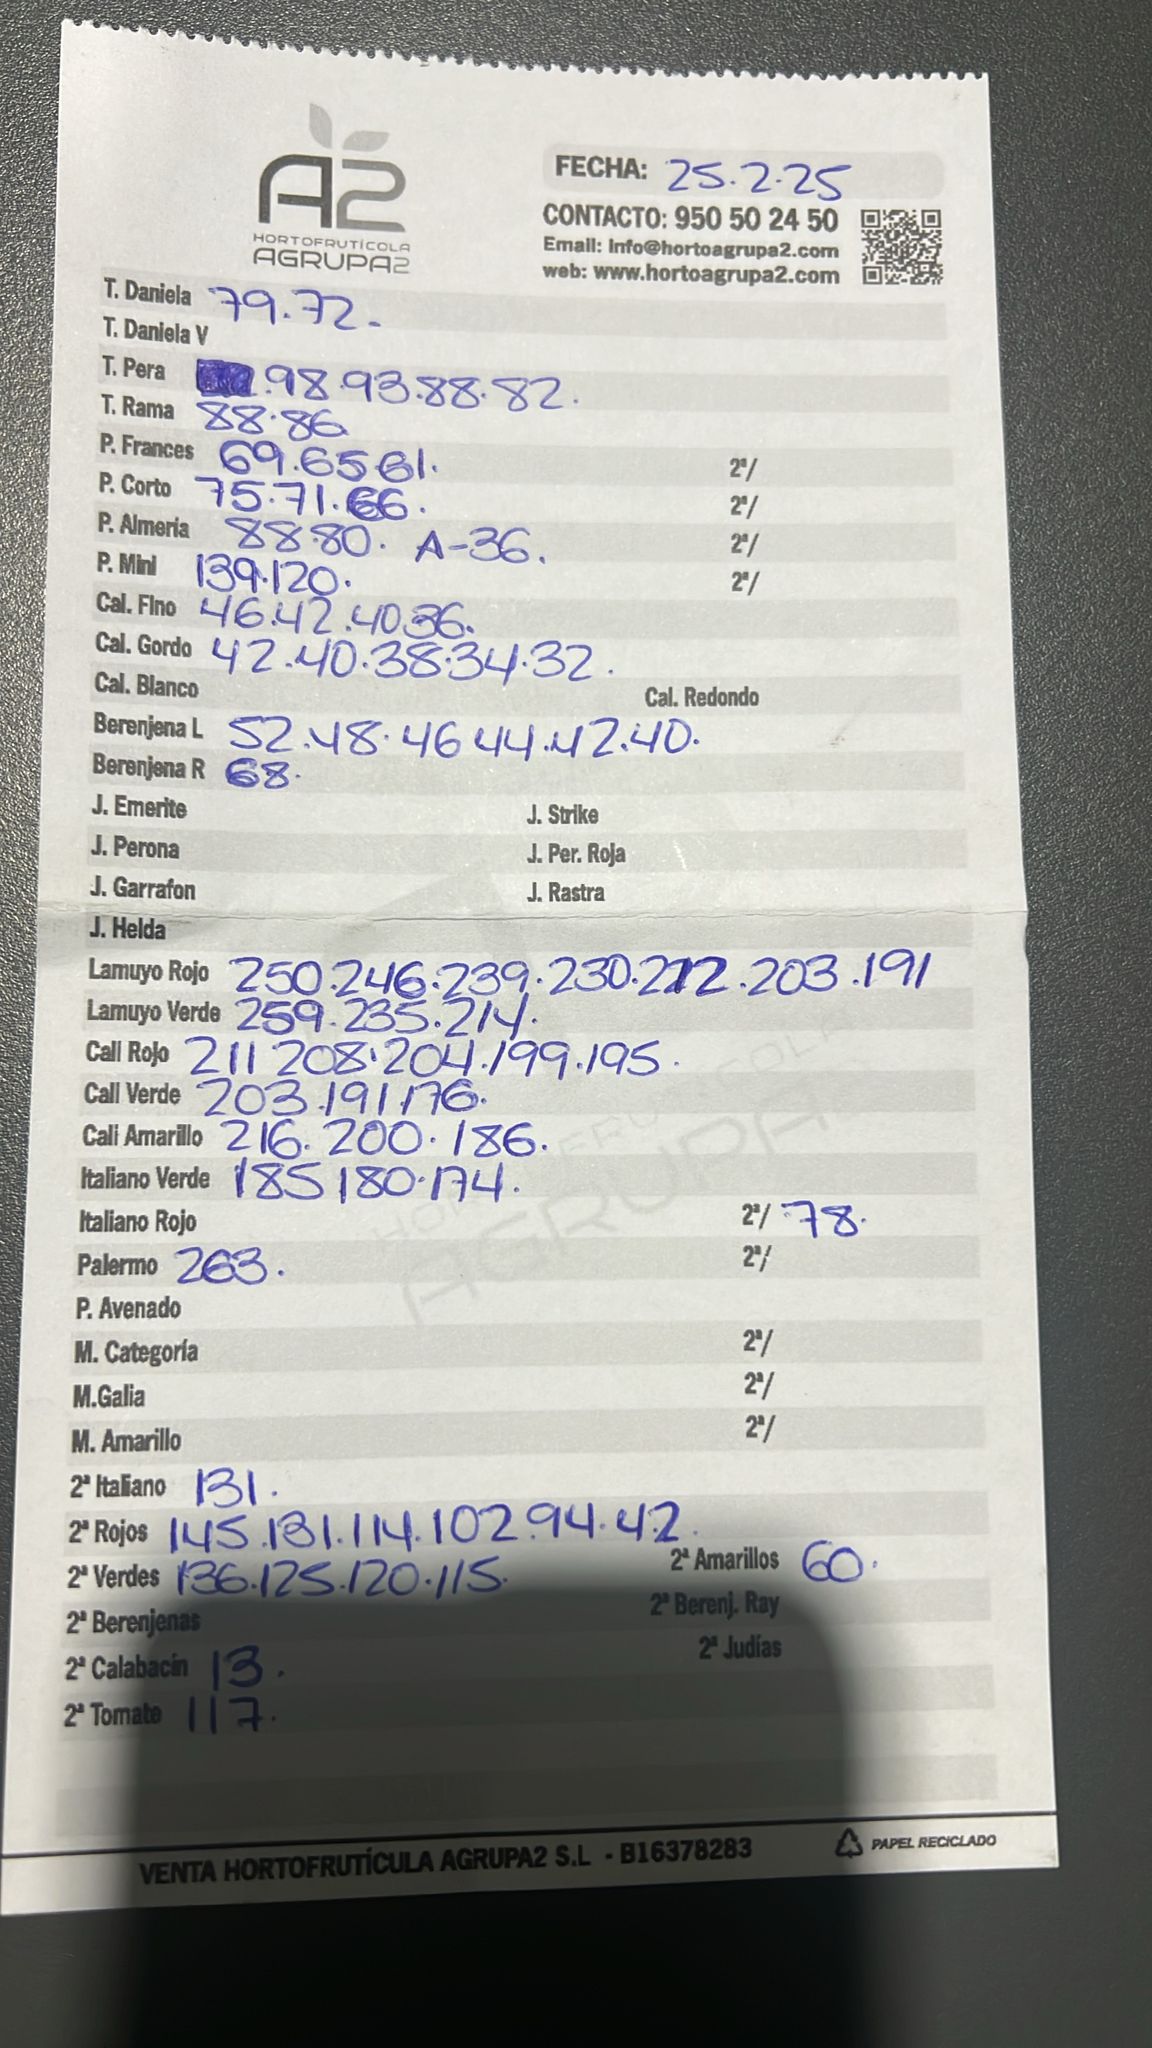 A2
HORTOFRUTÍCOLA
AGRUPA2
FECHA: 25.2.25
CONTACTO: 950 50 24 50
Email: info@hortoagrupa2.com
web: www.hortoagrupa2.com
T. Daniela 79.72.
T. Daniela V
T. Pera .98.93.88.82.
T. Rama 88.86
P. Frances 69.65.61. 2ª/
P. Corto 75.71.66. 2ª/
P. Almería 88.80. A-36. 2ª/
P. Mini 139.120. 2ª/
Cal. Fino 46.42.40.36.
Cal. Gordo 42.40.38.34.32.
Cal. Blanco Cal. Redondo
Berenjena L 52.48.46 44.42.40.
Berenjena R 68.
J. Emerite J. Strike
J. Perona J. Per. Roja
J. Garrafon J. Rastra
J. Helda
Lamuyo Rojo 250.246.239.230.212.203.191
Lamuyo Verde 259.235.214.
Cali Rojo 211 208.204.199.195.
Cali Verde 203.191.176.
Cali Amarillo 216.200.186.
Italiano Verde 185 180.174.
Italiano Rojo 2ª/ 78.
Palermo 263. 2ª/
P. Avenado
M. Categoría 2ª/
M.Galia 2ª/
M. Amarillo 2ª/
2ª Italiano 131.
2ª Rojos 145.131.114.102.94.42.
2ª Verdes 136.125.120.115. 2ª Amarillos 60.
2ª Berenjenas 2ª Berenj. Ray
2ª Calabacín 13. 2ª Judías
2ª Tomate 117.
VENTA HORTOFRUTÍCULA AGRUPA2 S.L - B16378283 PAPEL RECICLADO